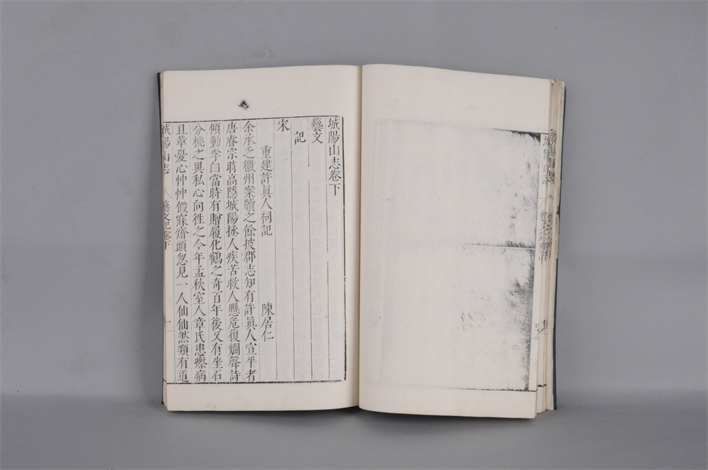 城陽山志卷下
藝文
記
宋
重建許真人祠記　陳居仁
余承乏徽州案牘之餘披郡志知有許真人宣平者
唐睿宗時高隱城陽拯人疾苦救人懸危復嫺聲詩
傾動李白當時有贈履化鶴之奇百年後又有坐石
分桃之異私心向往之今年孟秋室人章氏患瘵病
且革憂心忡忡假寐齋頭忽見一人仙仙然顎有道
城陽山志　藝文記卷下